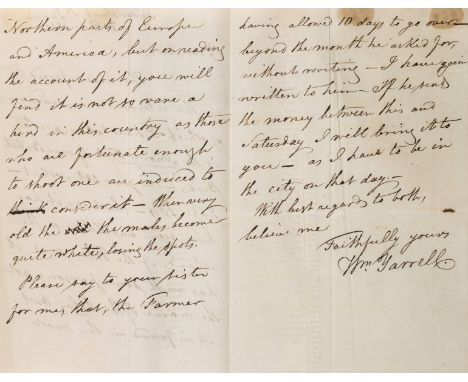 Northern parts of Europe
and America, but on reading
the account of it, you will
find it is not so rare a
bird in this country as those
who are fortunate enough
to shoot one are induced to
think consider it – When very
old the the males become
quite white, losing the spots.
Please say to your sister
for me, that, the Farmer
having allowed 10 days to go over –
beyond the month he asked for,
without writing – I have again
written to him – If he pays
the money between this and
Saturday I will bring it to
you – as I have to be in
the city on that day –
With best regards to both,
believe me
Faithfully yours
Wm. Yarrell.